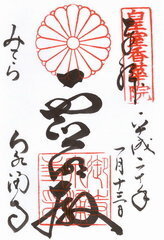 皇室香華院
奉拝
平成二十年
月十三日
霊明殿
みてら
泉涌寺